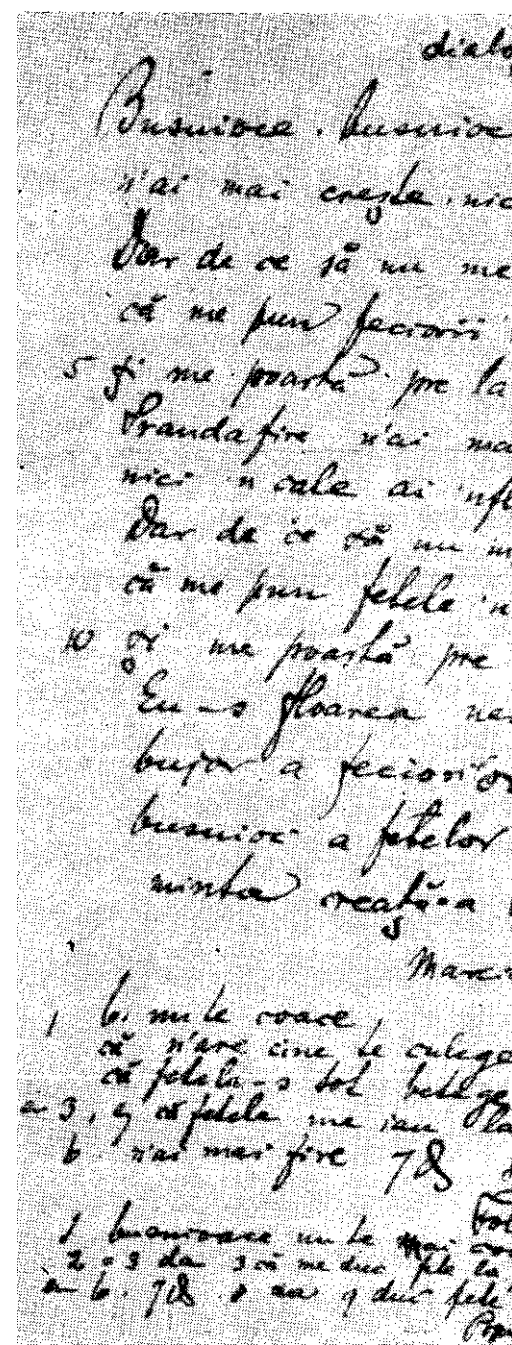 dialo
Busuioce, busuioc
n'ai mai crește nic
Dar de ce să nu me
că me pun feciorii
5 și me poartă pre la
Trandafire n'ai ma
nici 'n cale ai 'nfl
Dar de ce să nu m
că me pun fetele 'n
10 și me poartă pre
Eu-s floarea ne
bujor a feciorilor
busuioc a fetelor
minta creață-a
Marc
1 b. nu te coace,
că n'are cine te culege
că fetele-s tot betege
a 3, 9 că fetele me ieu la
b n'ai mai fire 78
1 busuioace nu te mai coa
2 a 3 da 3 că me duc fete la
a b. 78 9 duc fete